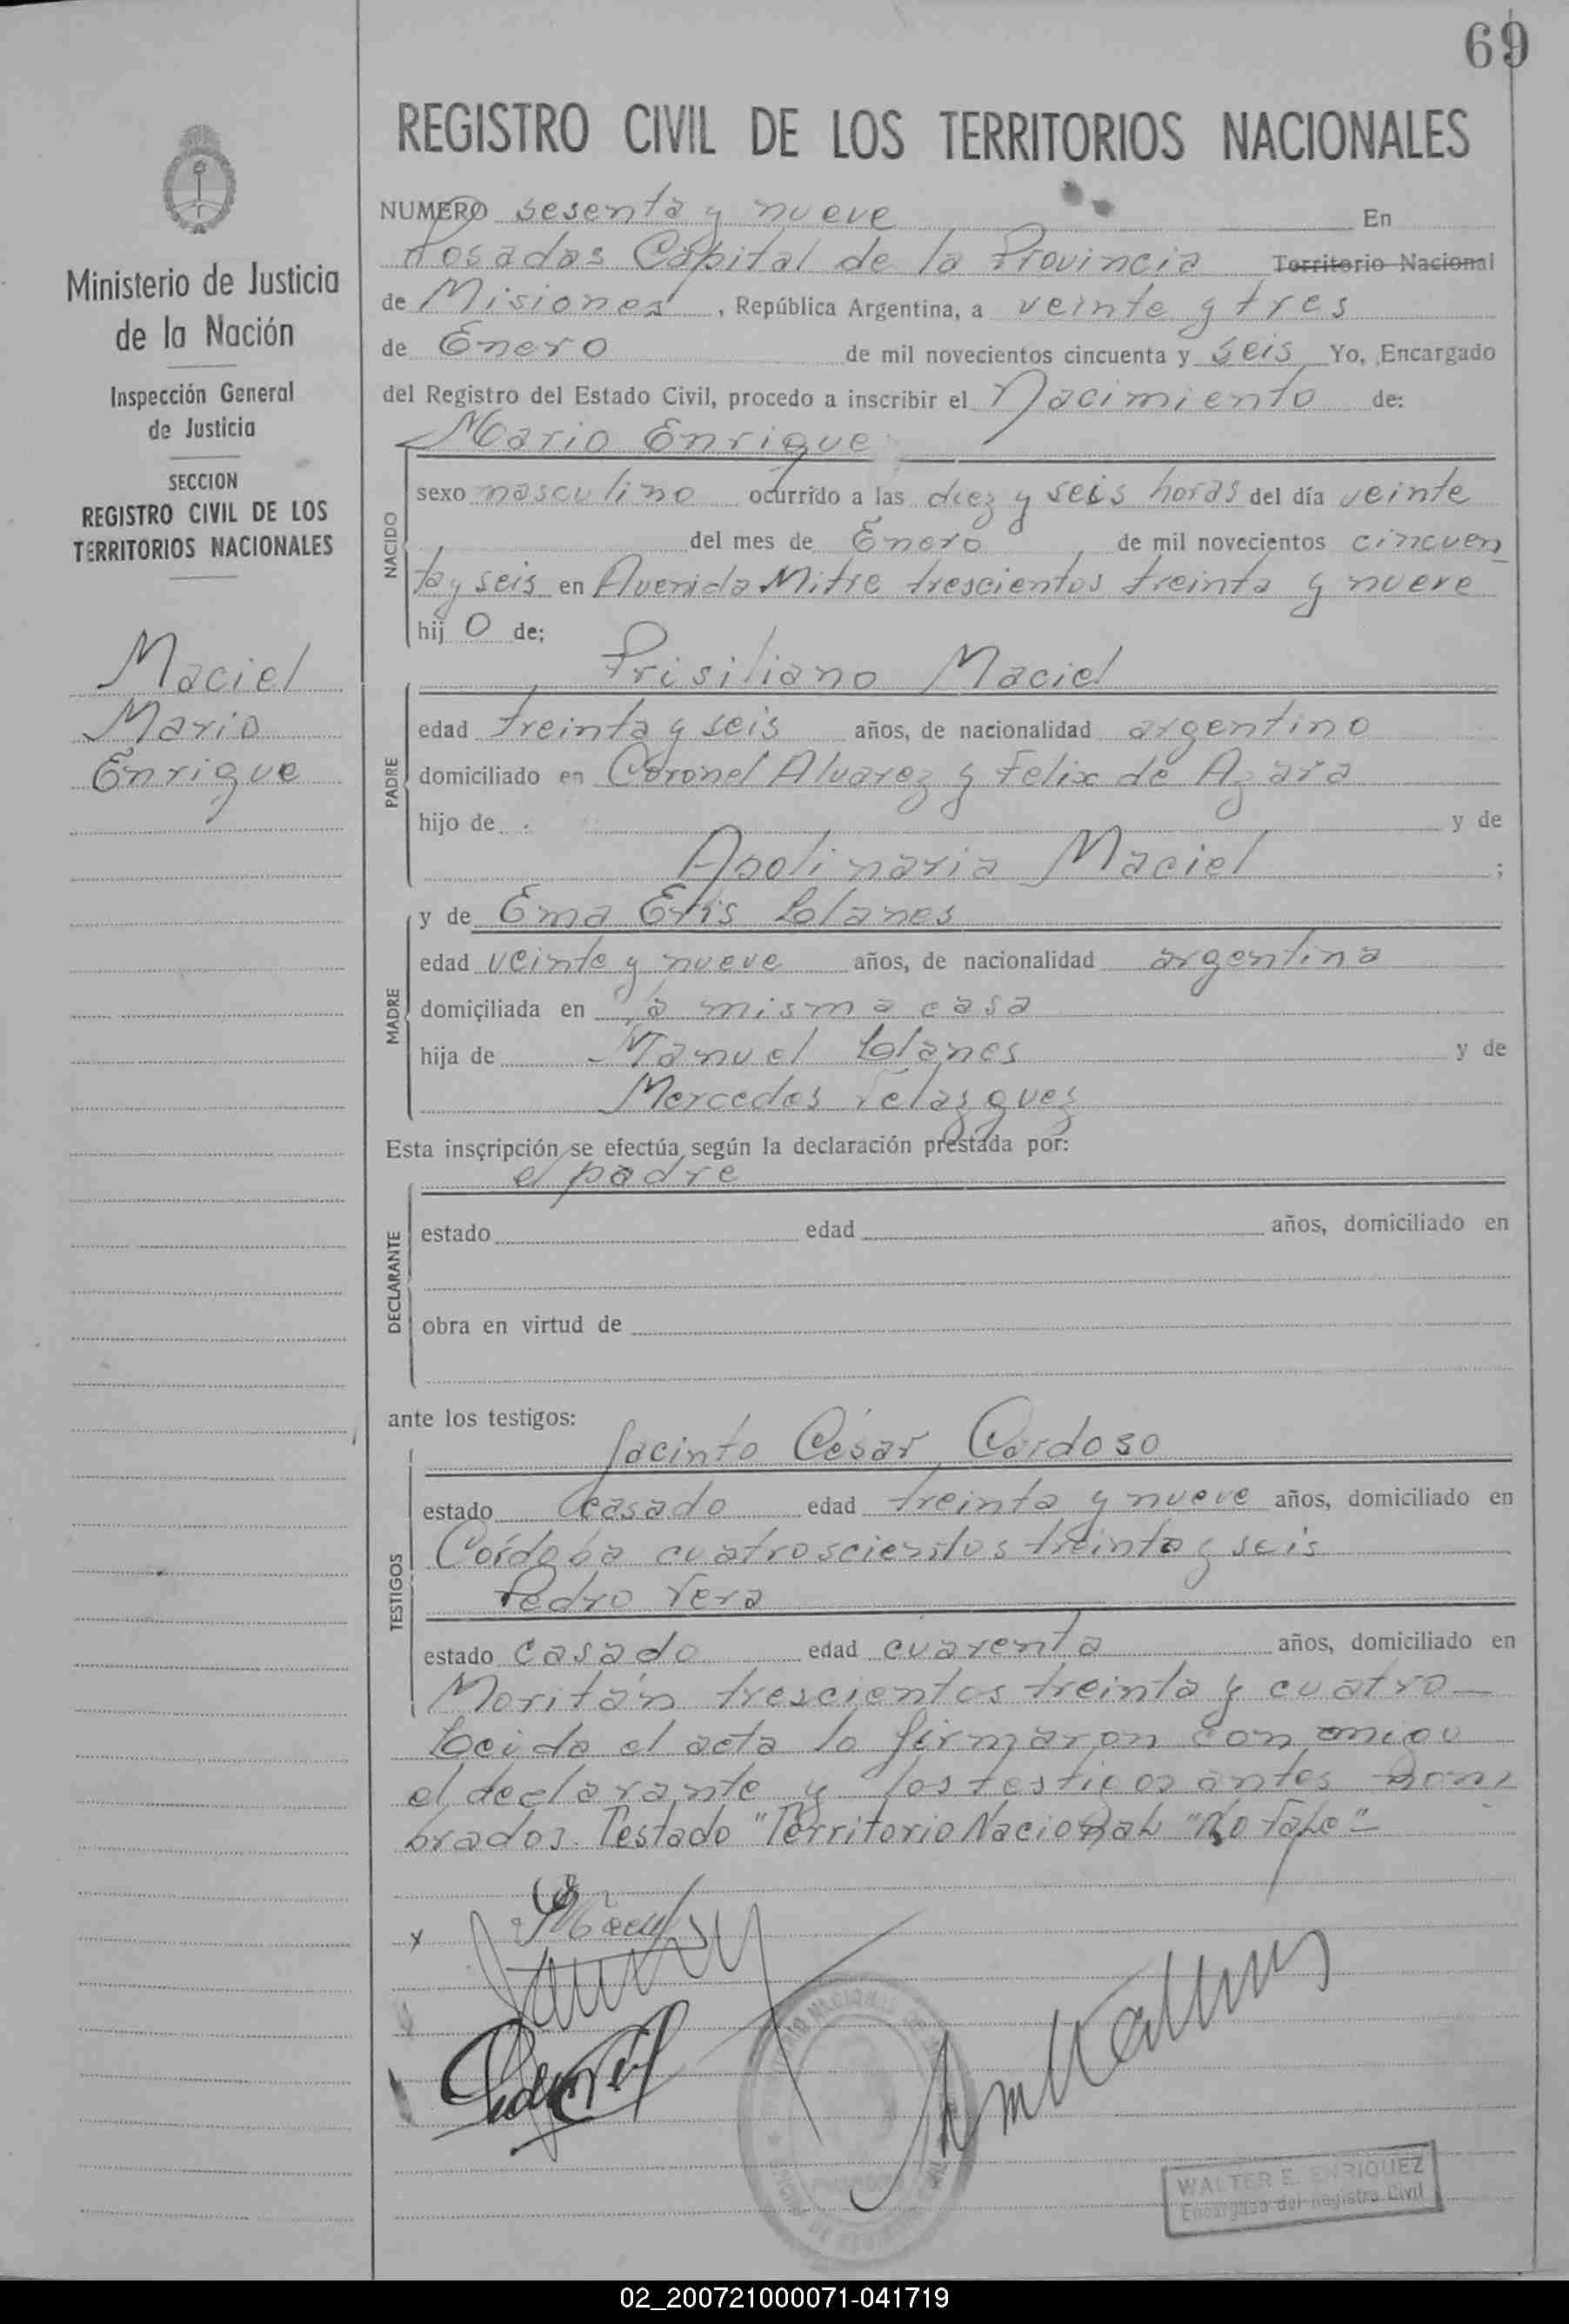 69
REGISTRO CIVIL DE LOS TERRITORIOS NACIONALES
Ministerio de Justicia
de la Nación
Inspección General
de Justicia
SECCION
REGISTRO CIVIL DE LOS
TERRITORIOS NACIONALES
Maciel
Mario
Enrique
NUMERO sesenta y nueve En
Posadas Capital de la Provincia Territorio Nacional
de Misiones, República Argentina, a veinte y tres
de Enero de mil novecientos cincuenta y seis Yo, Encargado
del Registro del Estado Civil, procedo a inscribir el Nacimiento de:
Mario Enrique
NACIDO
sexo masculino ocurrido a las diez y seis horas del día veinte
del mes de Enero, de mil novecientos cincuen
ta y seis en Avenida Mitre trescientos treinta y nueve
hij o de;
PADRE
Prisiliano Maciel
edad treinta y seis años, de nacionalidad argentino
domiciliado en Coronel Alvarez y Felix de Azara
hijo de y de
Apolinaria Maciel;
MADRE
y de Ema Eris Lolanes
edad veinte y nueve años, de nacionalidad argentina
domiciliada en la misma casa
hija de Manuel Lolanes y de
Mercedes Velazquez
Esta inscripción se efectúa según la declaración prestada por:
el padre
DECLARANTE
estado edad años, domiciliado en
obra en virtud de
ante los testigos:
TESTIGOS
Jacinto César Cardoso
estado casado edad treinta y nueve años, domiciliado en
Córdoba cuatroscientos treinta y seis
Pedro Vera
estado casado edad cuarenta años, domiciliado en
Moritán trescientos treinta y cuatro
Leida el acta la firmaron con migo
el declarante y los testigos antes nom
brados. Testado "Territorio Nacional" "No Vale"
x
WALTER E. ENRIQUEZ
Encargado del Registro Civil
02_200721000071-041719